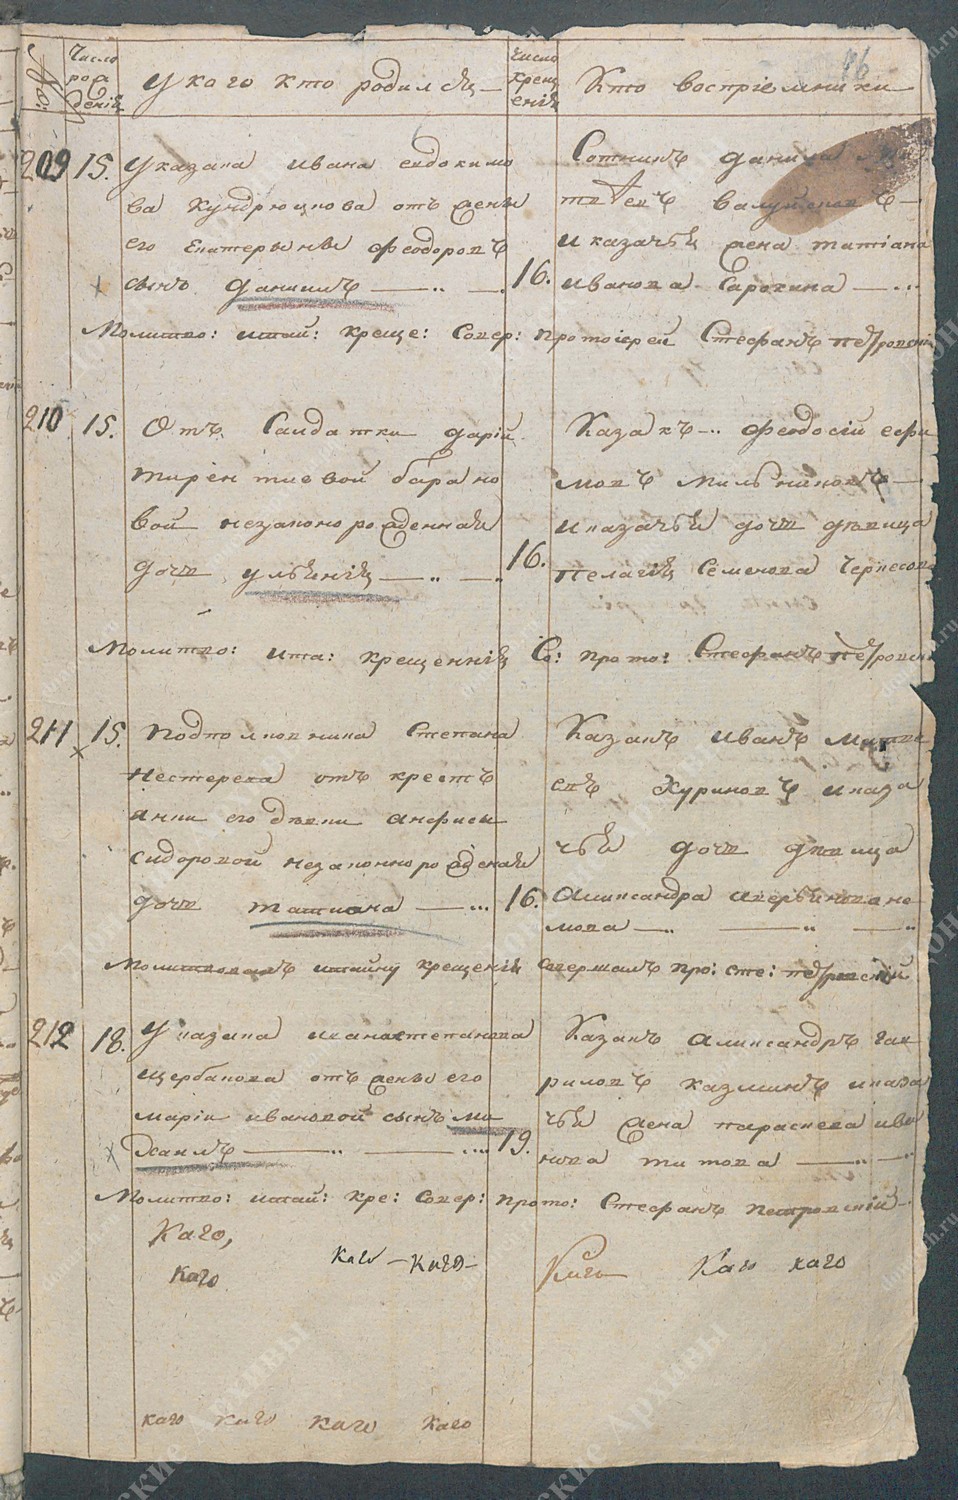 46
№: Число рождений У каго кто родился Число крещений Кто восприемники
209 15. У казака Ивана Евдокимо
ва Кундрюцкова отъ жены
его Екатерины Феодоровъ
сынъ Даниилъ
16. Сотникъ Данила Ма
твеевъ Валуйсковъ
и казачья жена Татiана
Иванова Сарокина
Молитво: итай: Креще: Совер: протоiерей Стефанъ Петровскiй
210 15. Отъ Салдатки Дарiи
Тирентиевой Барано
вой незаконорожденная
дочь Ульянiя
16. Казакъ Феодосiй Ефи
мовъ Мильниковъ
и казачья дочь девица
Пелагия Семенова Черкесова
Молитво: ита: Крещенния Со: прото: Стефанъ Петровски
211 15. Подполковника Степана
Нестерева отъ крестъ
янки его девки Анфисы
Сидоровой незаконнорожденая
дочь Татиана
16. Казакъ Иванъ Матве
евъ Журиковъ и каза
чья дочь девица
Аликсандра Аверьянова не
мова
Молитвовалъ итайну крещенiя Совершалъ про: Сте: Петровскiй
212 18. У казака Ивана Степанова
Щербакова отъ жены его
Марiи Ивановой сынъ Ми
хаилъ
19. Казакъ Аликсандръ Гав
риловъ Казминъ и каза
чья жена Параскева Ива
нова Титова
Молитво: итай: Кре: Совер: прото: Стефанъ Петровскiй
Каго,
каго каго – каго – Каго Каго каго
каго каго каго каго